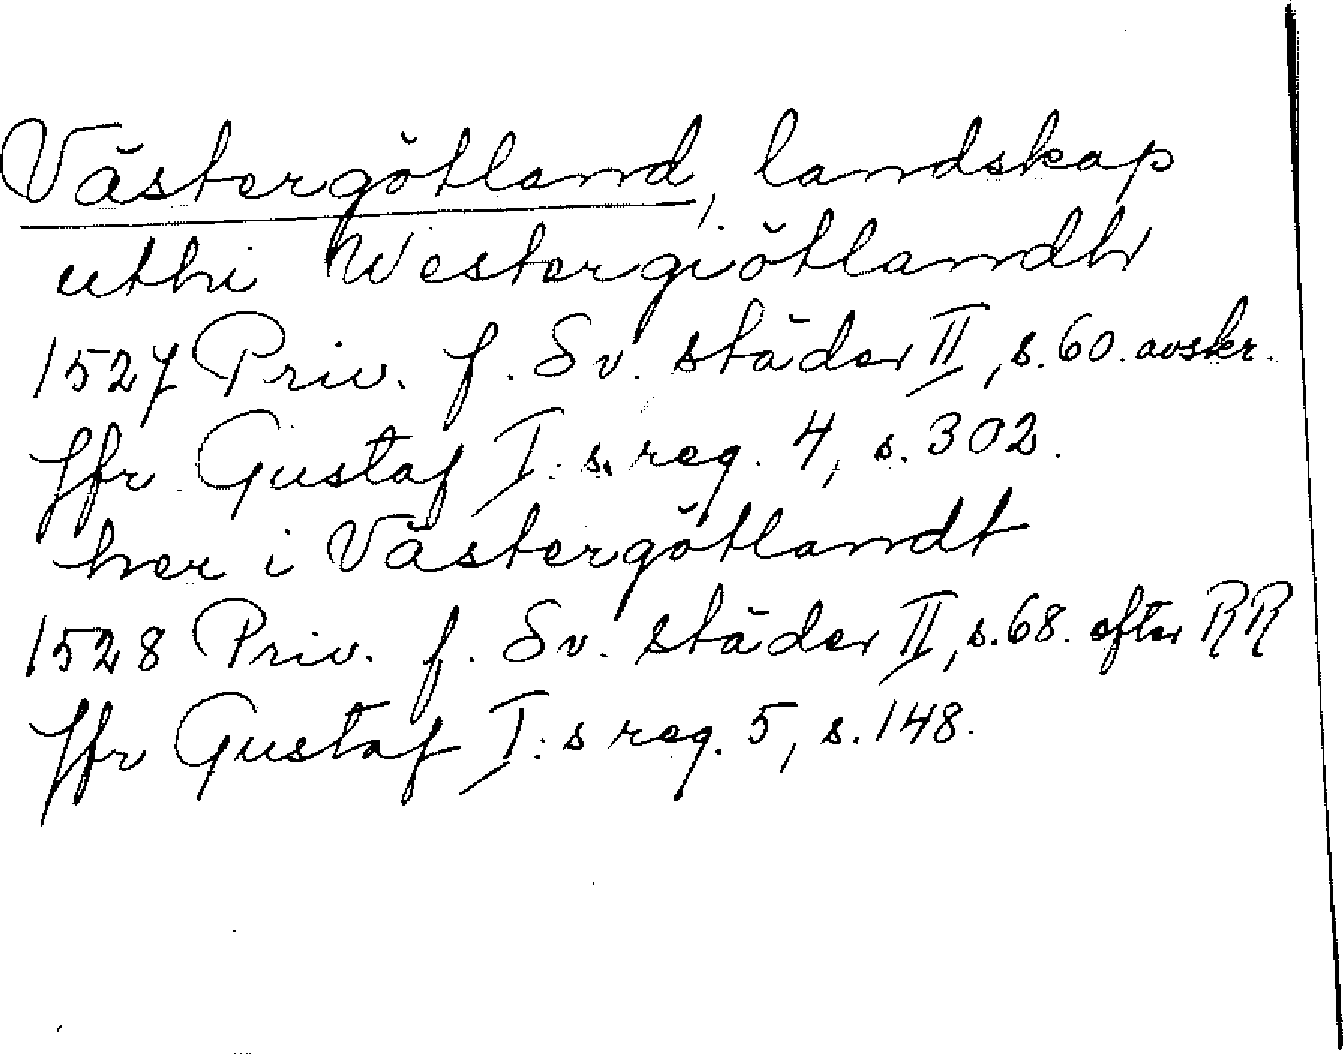 Västergötland, landskap
uthi Westergiötlandh
1527 Priv. f. Sv. städer II, s. 60. avskr.
Jfr Gustaf I:s. reg. 4, s. 302.
her i Västergötlandt
1528 Priv. f. Sv. städer II, s. 68. efter RR
Jfr Gustaf I:s reg. 5, s. 148.